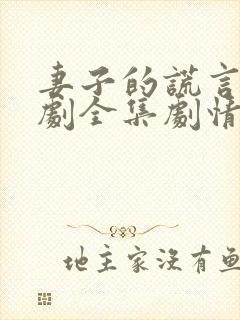 妻子的謊言
劇全集劇情
地主家沒有魚